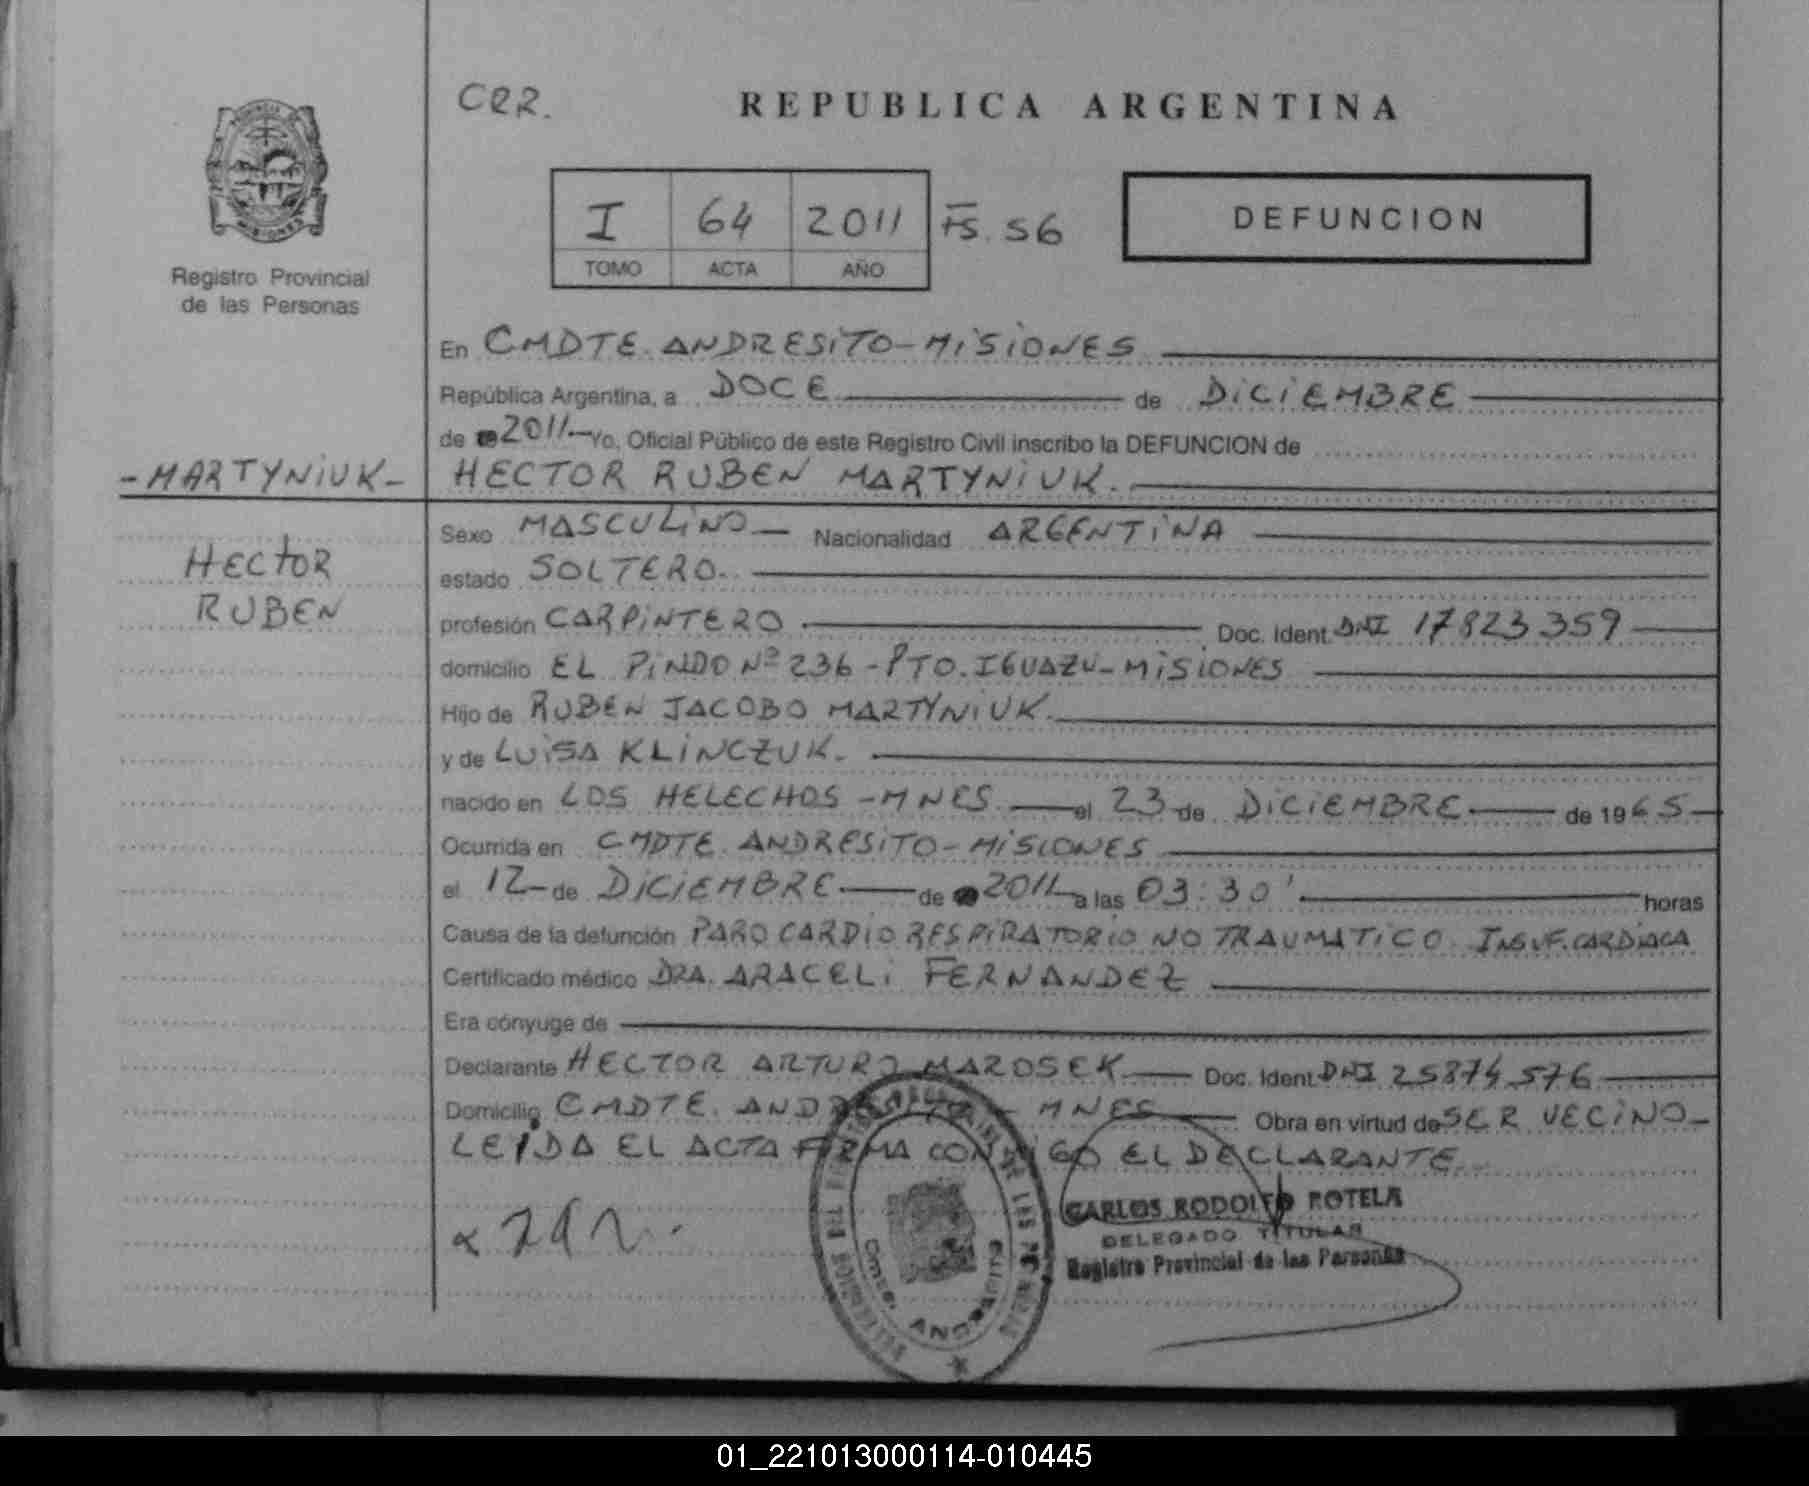 CRR.
REPUBLICA ARGENTINA
I 64 2011 FS. 56
TOMO ACTA AÑO
DEFUNCION
MISIONES
Registro Provincial
de las Personas
En CMDTE. ANDRESiTO-MiSiONES
República Argentina, a DOCE de DiCiEMBRE
de 2011 Yo, Oficial Público de este Registro Civil inscribo la DEFUNCION de
-MARTYNiUK- HECTOR RUBEN MARTYNiUK.
HECtOR
RUBEN
Sexo MASCULiNO Nacionalidad ARGENTiNA
estado SOLTERO.
profesión CARPiNTERO Doc. Ident. DNI 17823359
domicilio EL PiNDO Nº 236 - PTO. IGUAZU - MiSiONES
Hijo de RUBEN JACOBO MARTYNiUK.
y de LUiSA KLiNCZUK.
nacido en LOS HELECHOS - MNES. el 23 de DiCiEMBRE de 1965
Ocurrida en CMDTE. ANDRESiTO - MiSiONES
el 12 de DiCiEMBRE de 2011 a las 03:30' horas
Causa de la defunción PARO CARDiO RESPiRATORiO NO TRAUMATiCO. INSUF. CARDiACA
Certificado médico DRA. ARACELi FERNANDEZ
Era cónyuge de
Declarante HECTOR ARTURO MAROSEK Doc. Ident. DNI 25874576
Domicilio CMDTE. ANDRESiTO - MNES Obra en virtud de SER VECiNO-
LEiDA EL ACTA FiRMA CONMiGO EL DECLARANTE.
CARLOS RODOLFO ROTELA
DELEGADO TITULAR
Registro Provincial de las Personas
Cmte. ANDRESITO
01_221013000114-010445